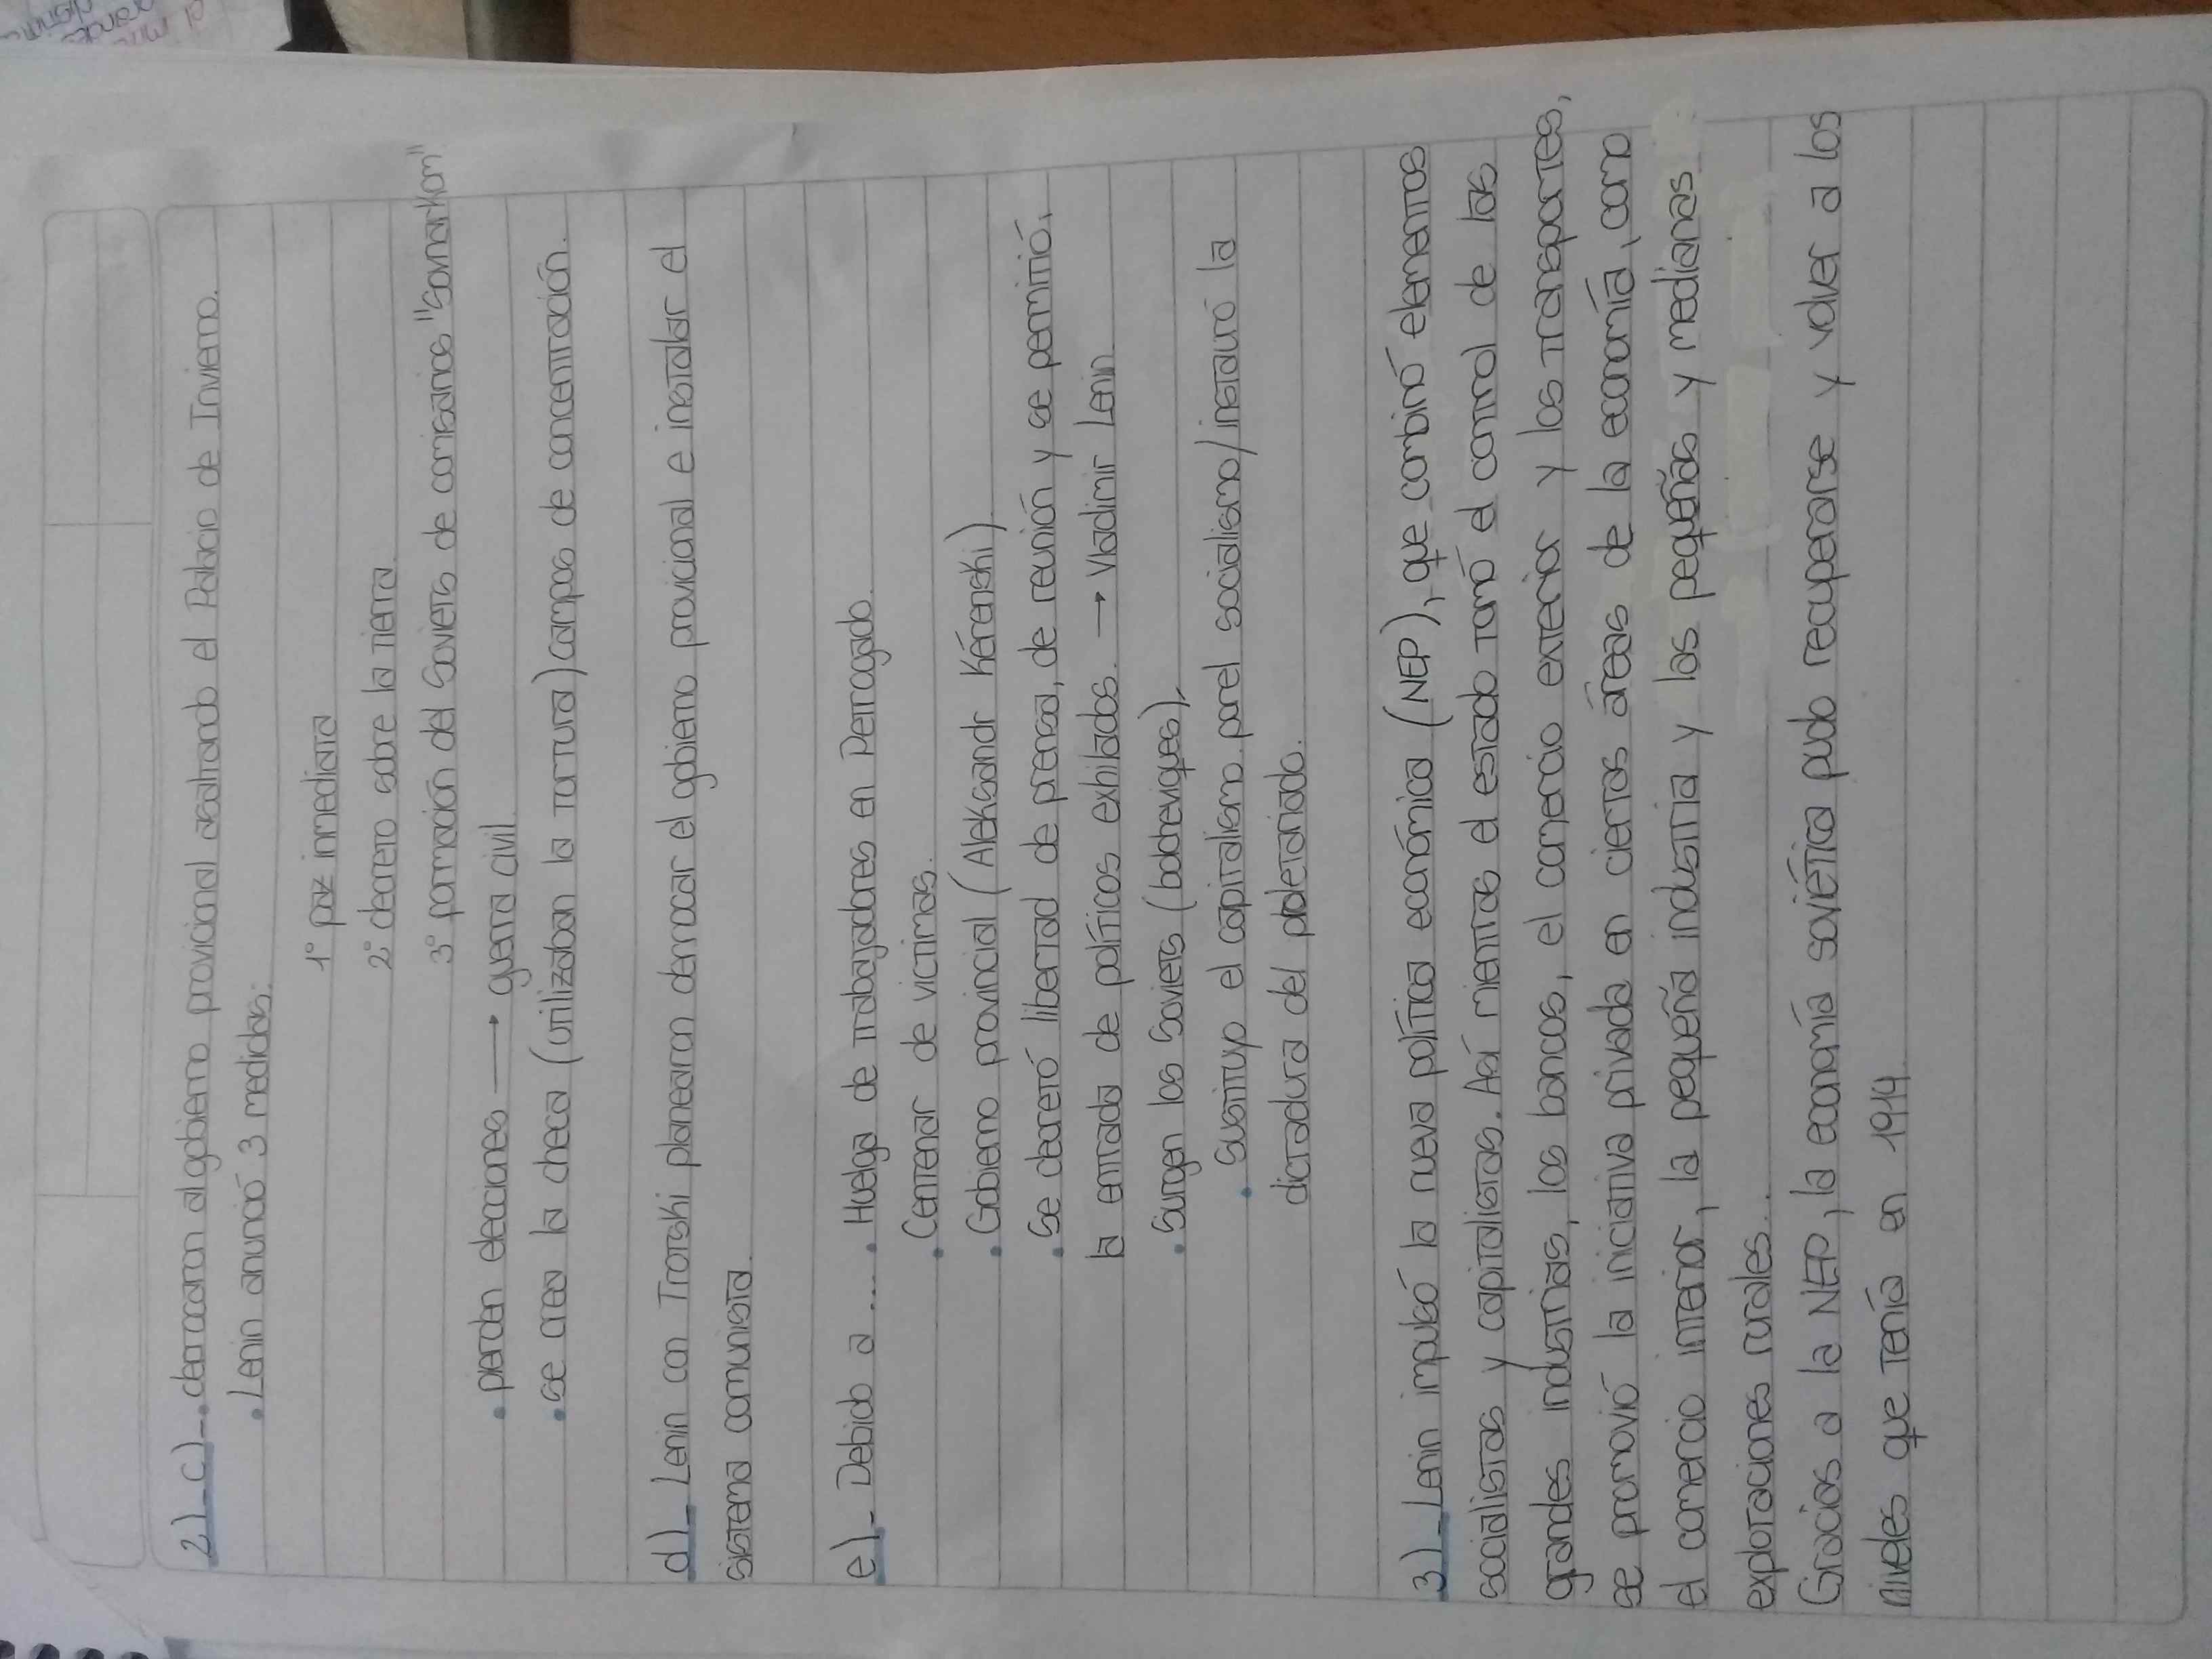 2)_c)_. derrocaron al gobierno provicional asaltando el Palacio de Invierno.
. Lenin anunció 3 medidas:
1° paz inmediata
2° decreto sobre la tierra.
3° formación del Soviets de comisarios "Sovnarkom"
. pierden elecciones → guerra civil.
. se crea la checa (utilizaban la tortura) campos de concentración.
d)_ Lenin con Trotski planearon derrocar el gobierno provicional e instalar el
sistema comunista.
e)_ Debido a .... . Huelga de trabajadores en Petrogado.
. Centenar de victimas.
. Gobierno provincial (Aleksandr Kérenski)
. Se decretó libertad de prensa, de reunión y se permitió,
la entrada de políticos exhilados. → Vladimir Lenin
. Surgen los Soviets (bolcheviques),
. Sustituyo el capitalismo. por el socialismo/instauró la
dictadura del proletariado.
3)_ Lenin impulsó la nueva política económica (NEP), que combinó elementos
socialistas y capitalistas. Así mientras el estado tomó el control de las
grandes industrias, los bancos, el comercio exterior y los transportes,
se promovió la iniciativa privada en ciertas áreas de la economía, como
el comercio interior, la pequeña industria y las pequeñas y medianas
explotaciones rurales.
Gracias a la NEP, la economía soviética pudo recuperarse y volver a los
niveles que tenía en 1914.